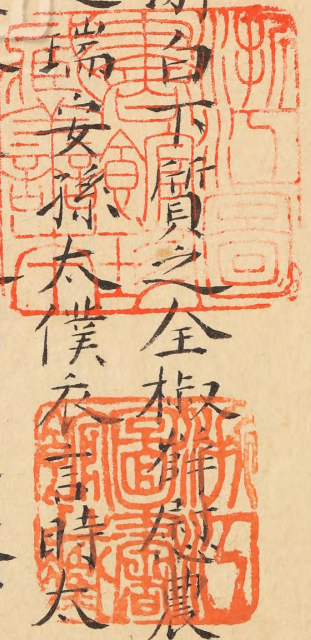 白下質之全椒薛慰農
瑞安孫太僕衣言時太